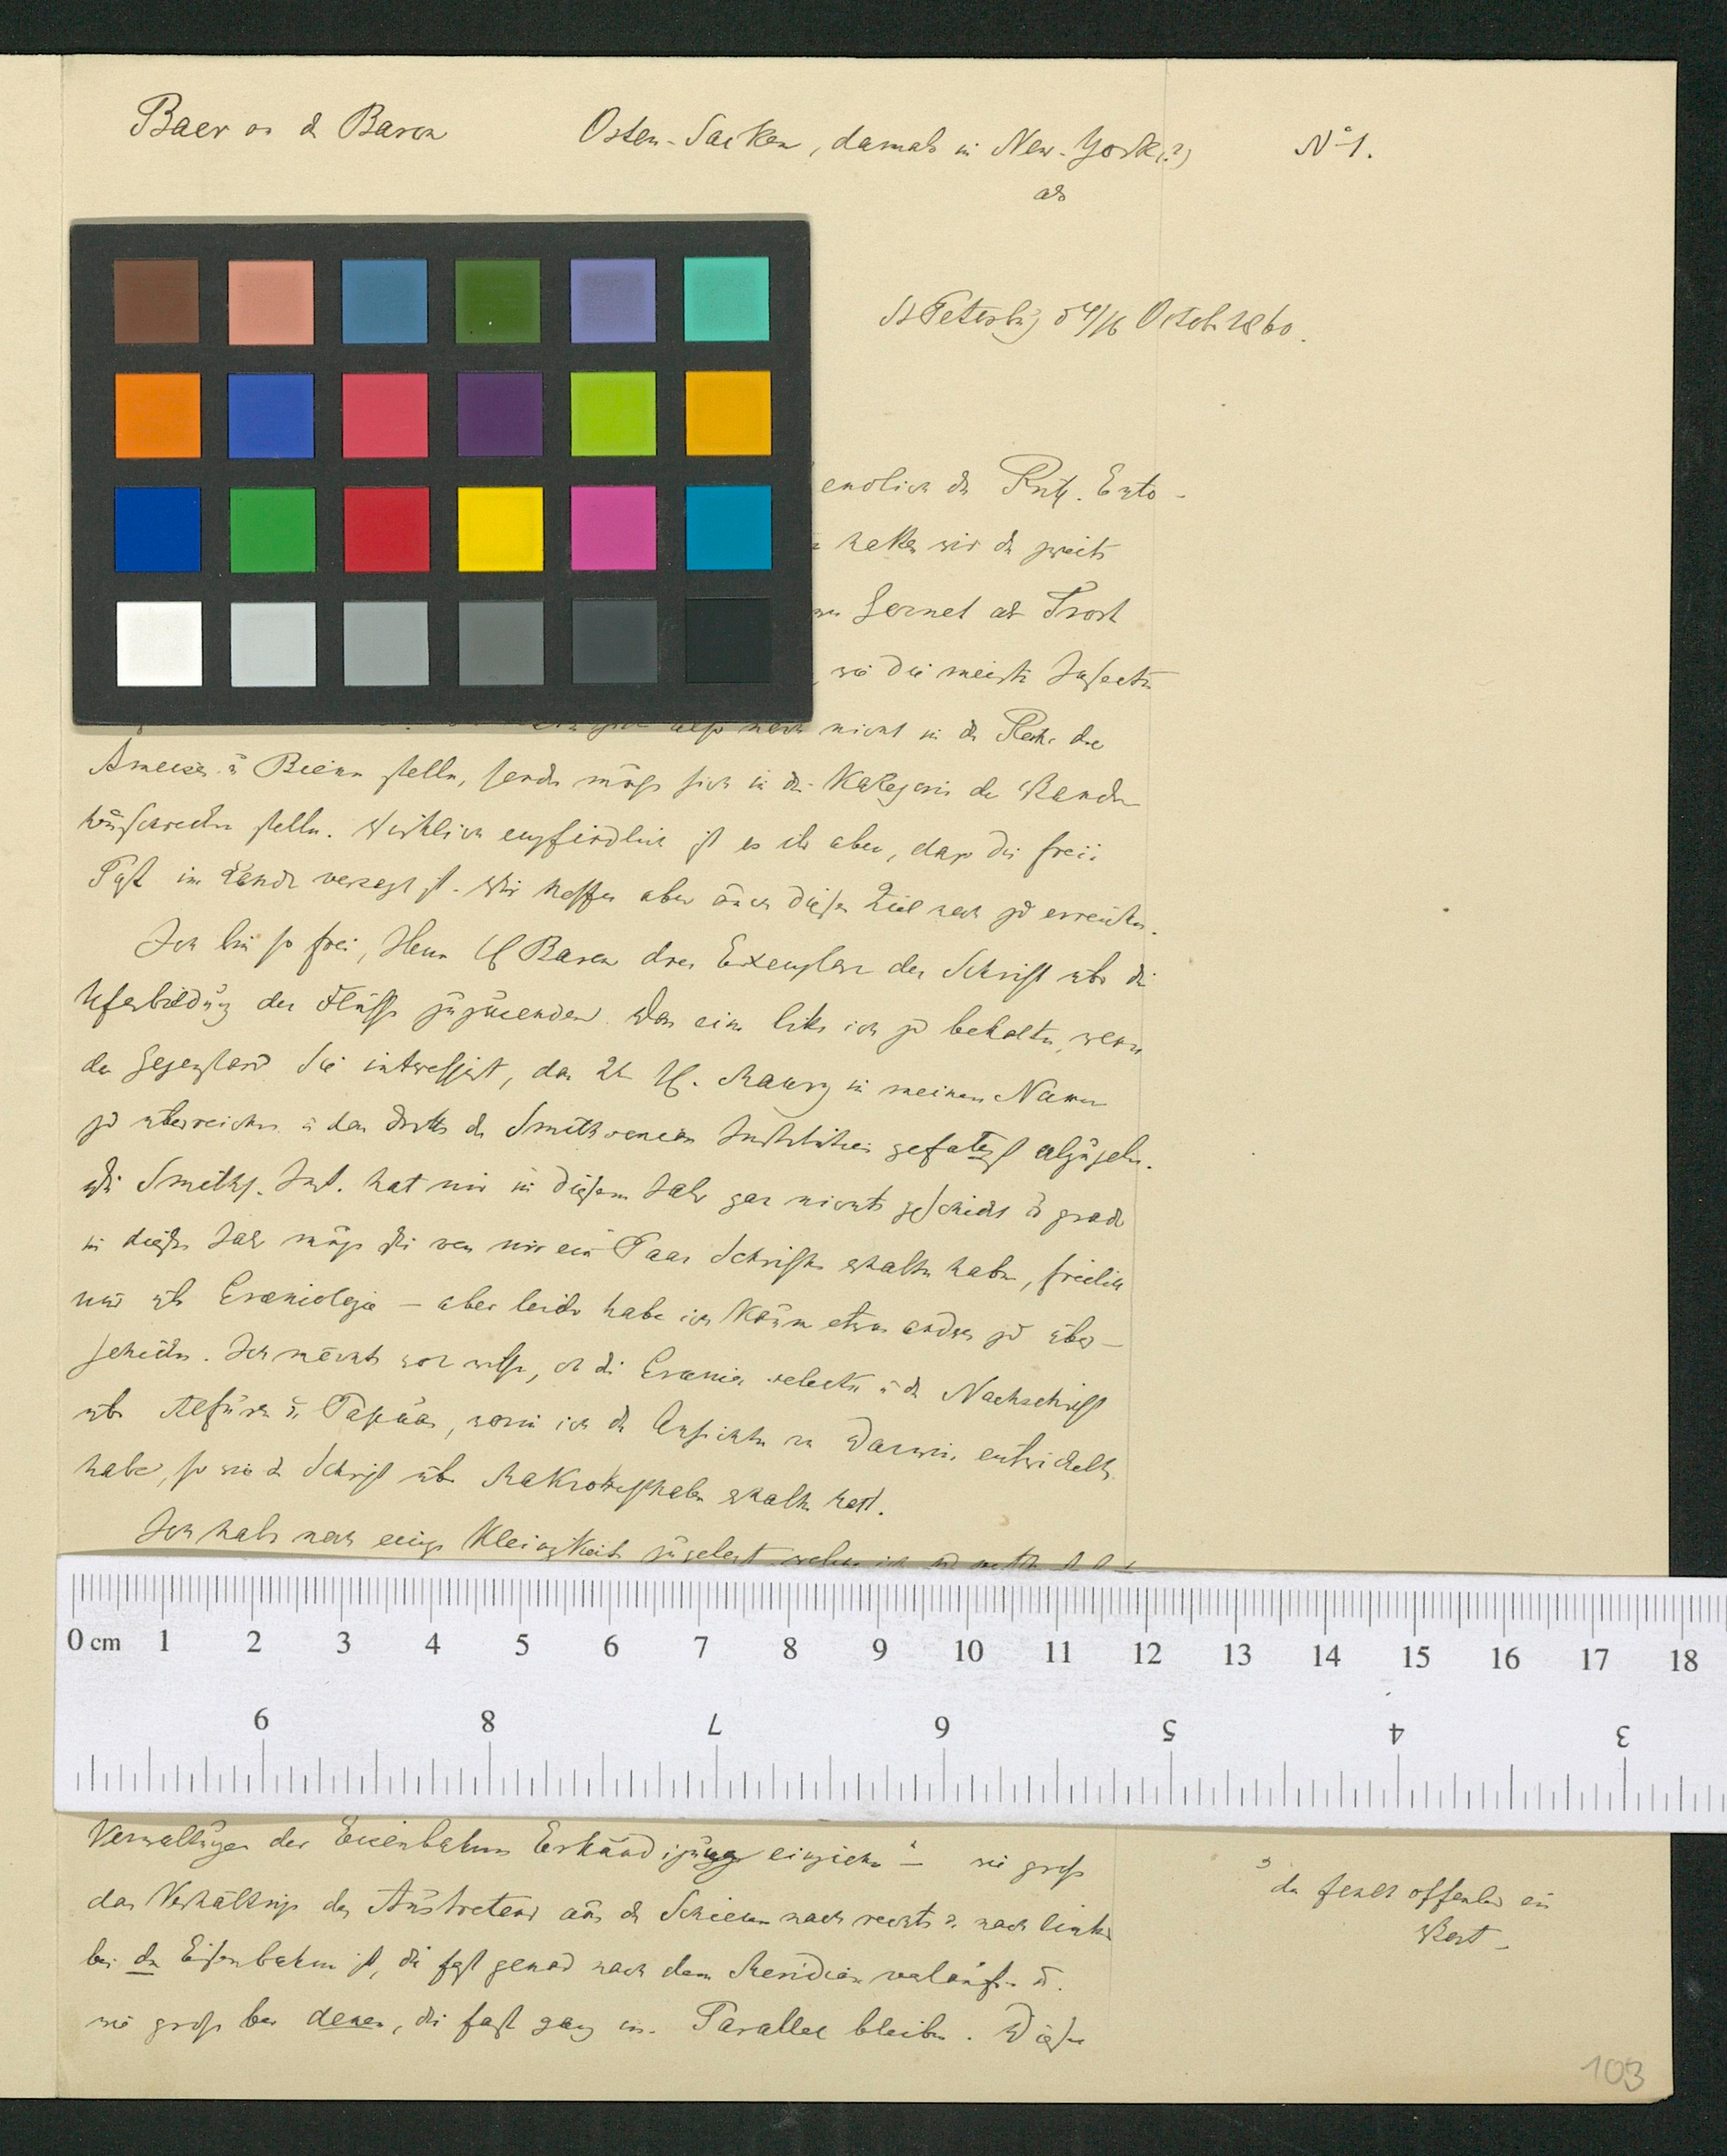 Baer an d Baron Osten-Sacken, damals in New-York(?) No 1.
als
St Petersbg d 4/16 Octob 1860.
endlich die Russ. Ento-
hatten wir d zweite
Gernet als Trost
, wie die meisten Insecten
also noch nicht in die Reihe der
Ameisen u Bienen stellen, sondern muss sich in die Kategorie der Wander
heuschrecken stellen. Wirklich empfindlich ist es ihr aber, dass die freie
Post im Lande versagt ist. Wir hoffen aber auch dieses Ziel noch zu erreichen.
Ich bin so frei, Herrn Baron drei Exemplare der Schrift über die
Uferbildung der Flüsse zuzusenden. Das eine bitte ich zu behalten, wenn
der Gegenstand Sie interessirt, das 2te H. Maury in meinem Namen
zu überreichen u das dritte der Smithsonian Institution gefälligst abzugeben.
Die Smiths. Inst. hat mir in diesem Jahr gar nichts geschickt u grade
in diesem Jahr muss sie von mir ein Paar Schriften erhalten haben, freilich
nur üb Craniologie – aber leider habe ich kaum etwas anderes zu über-
schicken. Ich möchte wol wissen, ob die Crania selecta u die Nachschrift
üb Alfuren u. Papuas, worin ich die Ansichten von Darwin entwickelt
habe, so wie d Schrift üb Makrokephalen erhalten hat.
Ich habe noch einige Kleinigkeiten zugelegt welche ich
0 cm 1 2 3 4 5 6 7 8 9 10 11 12 13 14 15 16 17 18
9 8 7 6 5 4 3
Verwaltungen der Eisenbahnen Erkundigung einziehen – wie gross
das Verhältniss des Austretens aus den Schienen nach rechts u. nach links
bei den Eisenbahnen ist, die fast genau nach dem Meridian verlaufen u.
wie gross bei denen, die fast ganz im Parallel bleiben. Diese
da fehlt offenbar ein
Wort
103